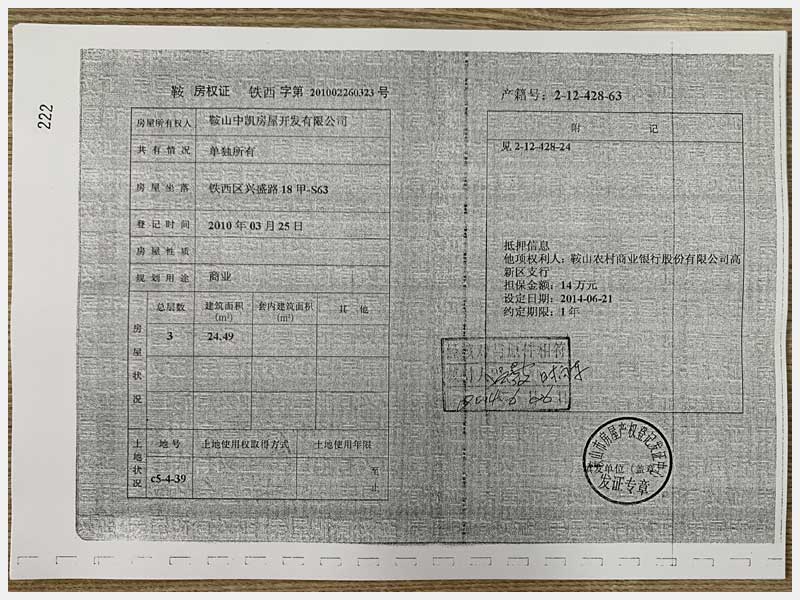 222
鞍 房权证 铁西 字第 201002260323 号
房屋所有权人 鞍山中凯房屋开发有限公司
共有情况 单独所有
房屋坐落 铁西区兴盛路 18 甲-S63
登记时间 2010 年 03 月 25 日
房屋性质
规划用途 商业
房屋状况
总层数 建筑面积(m²) 套内建筑面积(m²) 其他
3 24.49
土地状况
地号 土地使用权取得方式 土地使用年限
c5-4-39 至
止
产籍号：2-12-428-63
附 记
见 2-12-428-24
抵押信息
他项权利人：鞍山农村商业银行股份有限公司高
新区支行
担保金额：14 万元
设定日期：2014-06-21
约定期限：1 年
与原件相符
鞍山市房屋产权登记发证中心
填发单位（盖章）
发证专章